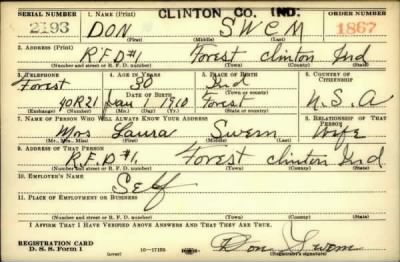 CLINTON CO. IND.
SERIAL NUMBER 1. NAME (Print) ORDER NUMBER
2193 DON SWEM 1867
(First) (Middle) (Last)
2. ADDRESS (Print)
R.F.D #1 Forest Clinton Ind
(Number and street or R. F. D. number) (Town) (County) (State)
3. TELEPHONE 4. AGE IN YEARS 5. PLACE OF BIRTH 6. COUNTRY OF CITIZENSHIP
Forest 30 Ind
DATE OF BIRTH (Town or county)
40R21 Jan 1 1910 Forest U.S.A
(Exchange) (Number) (Mo.) (Day) (Yr.) (State or country)
7. NAME OF PERSON WHO WILL ALWAYS KNOW YOUR ADDRESS 8. RELATIONSHIP OF THAT PERSON
Mrs Laura Swem Wife
(Mr., Mrs., Miss) (First) (Middle) (Last)
9. ADDRESS OF THAT PERSON
R.F.D #1 Forest Clinton Ind
(Number and street or R. F. D. number) (Town) (County) (State)
10. EMPLOYER'S NAME
Self
11. PLACE OF EMPLOYMENT OR BUSINESS
(Number and street or R. F. D. number) (Town) (County) (State)
I AFFIRM THAT I HAVE VERIFIED ABOVE ANSWERS AND THAT THEY ARE TRUE.
REGISTRATION CARD
D. S. S. Form 1 Don Swem
(Registrant's signature)